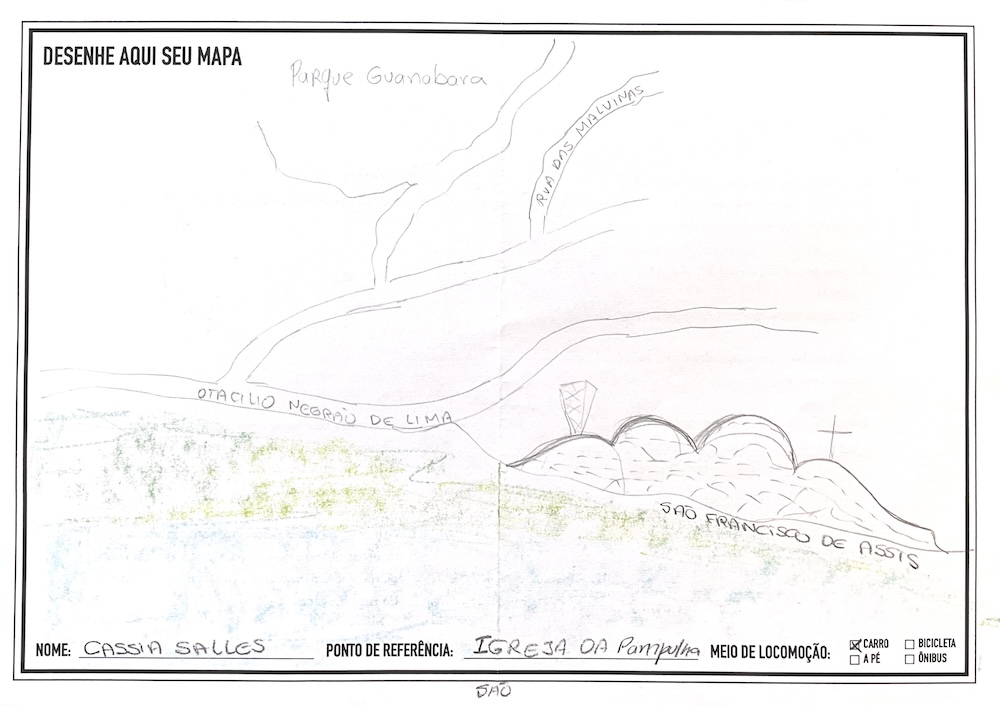 DESENHE AQUI SEU MAPA
Parque Guanabara
RUA DAS MALVINAS
OTACILIO NEGRÃO DE LIMA
SÃO FRANCISCO DE ASSIS
NOME: CASSIA SALLES
PONTO DE REFERÊNCIA: IGREJA DA Pampulha
MEIO DE LOCOMOÇÃO:
CARRO
BICICLETA
A PÉ
ÔNIBUS
SÃO